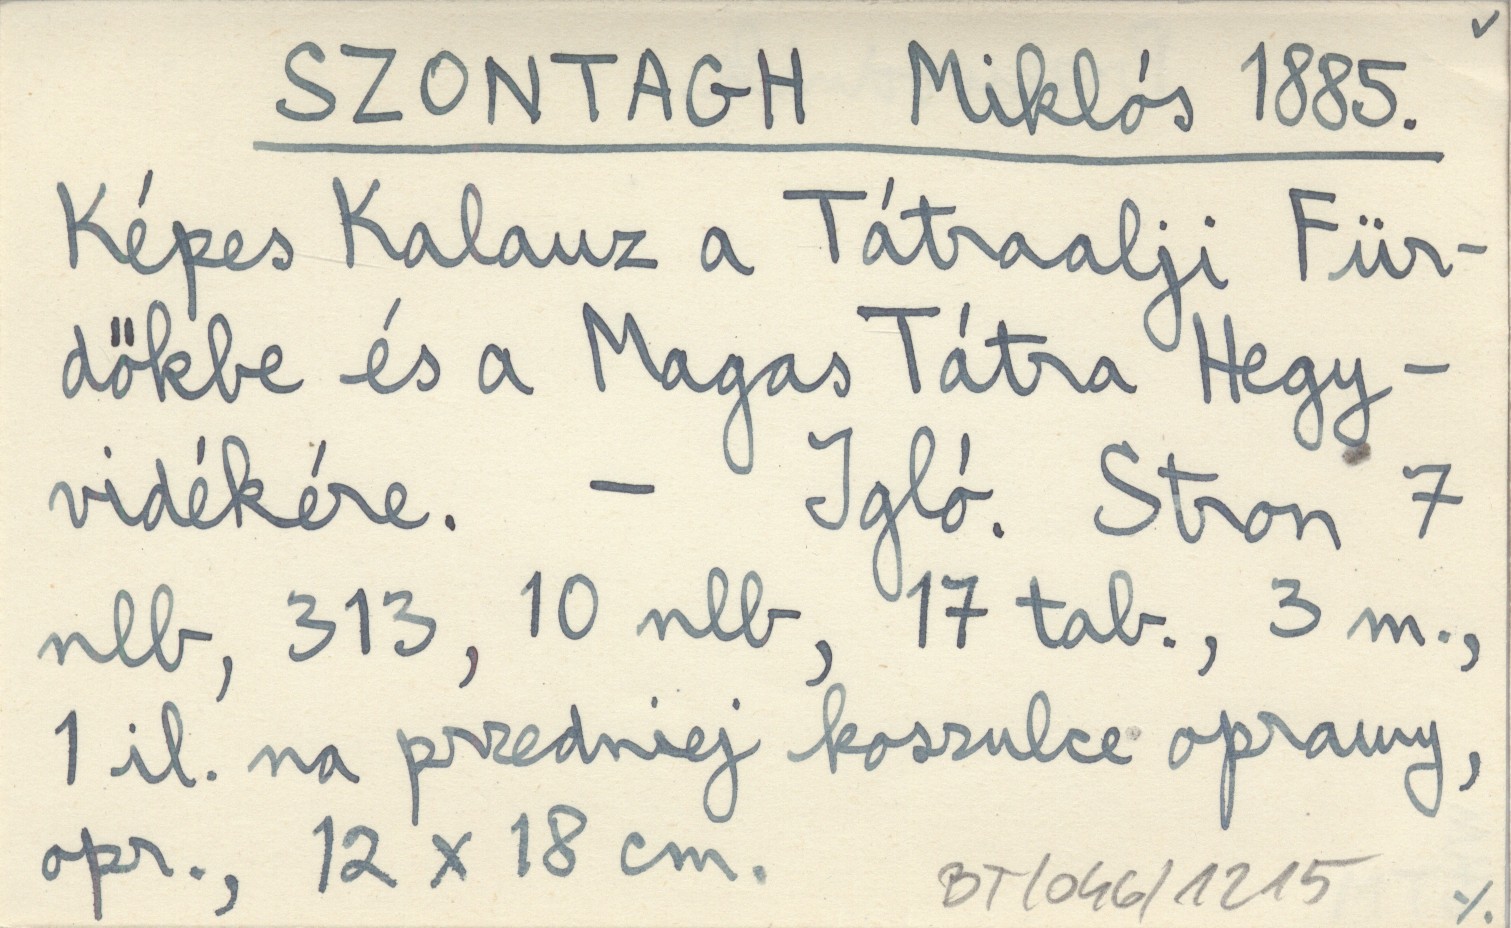 SZONTAGH Miklós 1885.
Képes Kalauz a Tátraalji Für-
dőkbe és a Magas Tátra Hegy-
vidékére. - Igló. Stron 7
nlb, 313, 10 nlb, 17 tab., 3 m.,
1 il. na przedniej koszulce oprawy,
opr., 12 x 18 cm.
BT/046/1215
·/.